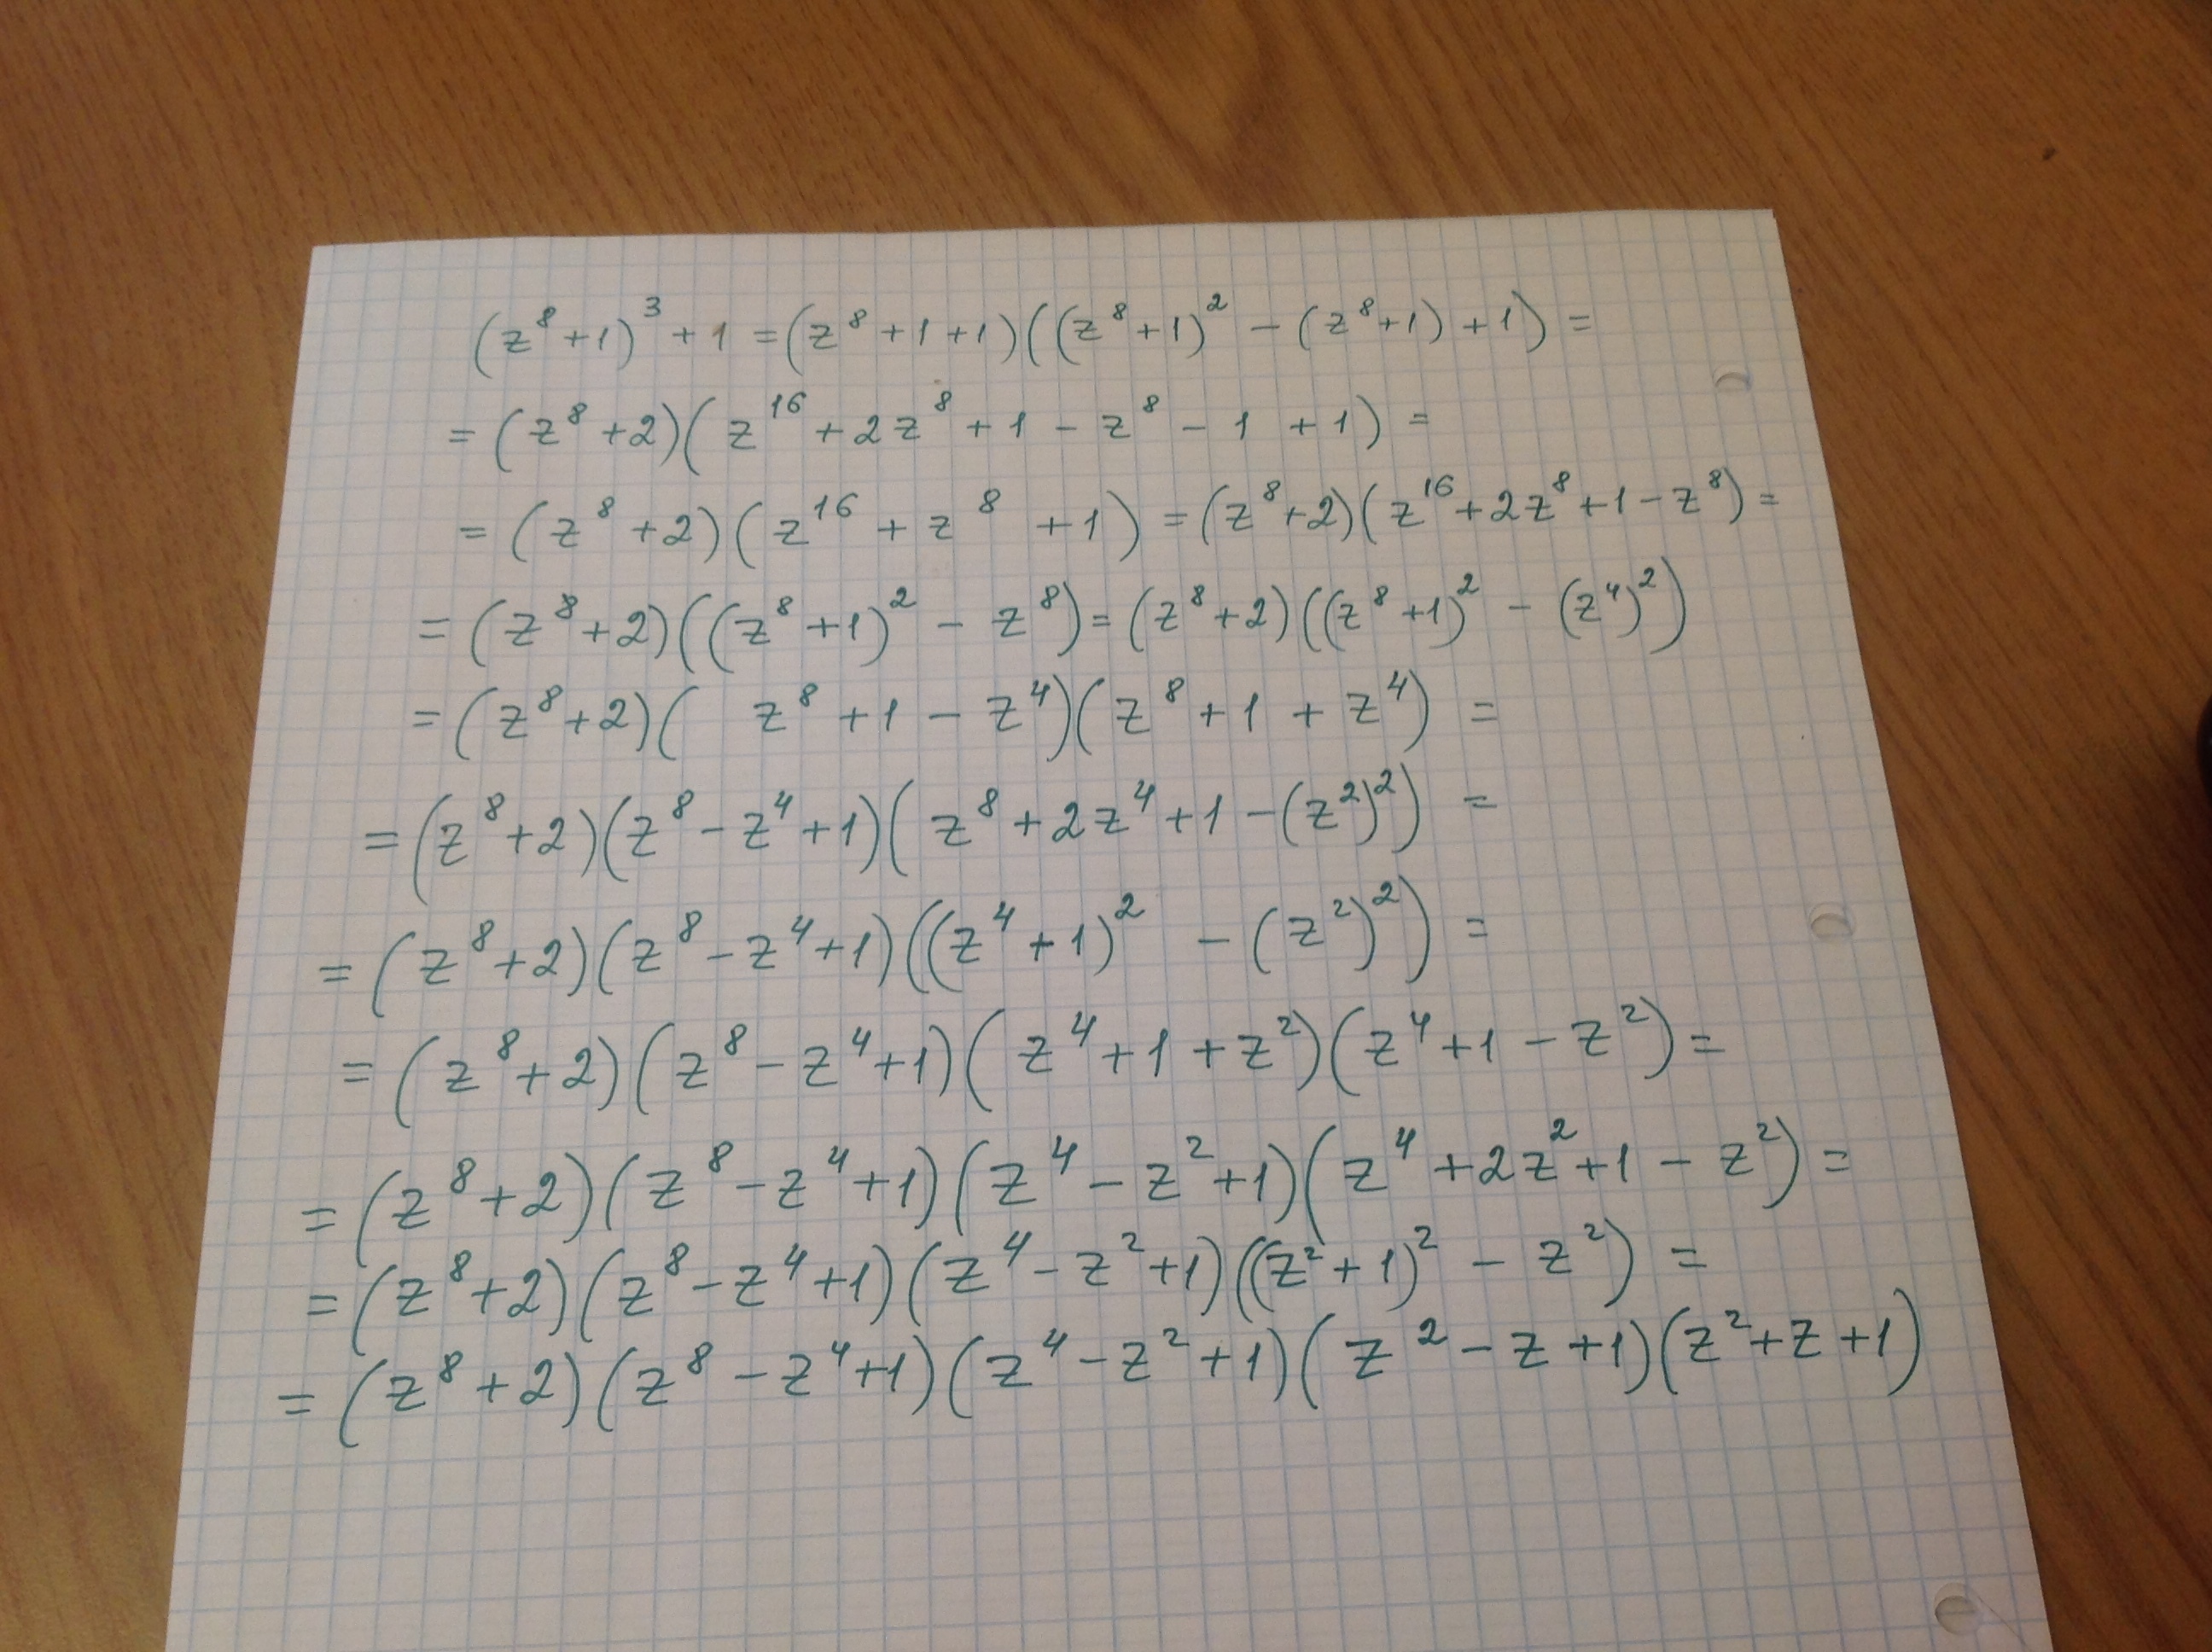 (z⁸+1)³+1=(z⁸+1+1)((z⁸+1)²-(z⁸+1)+1)=
=(z⁸+2)(z¹⁶+2z⁸+1-z⁸-1+1)=
=(z⁸+2)(z¹⁶+z⁸+1)=(z⁸+2)(z¹⁶+2z⁸+1-z⁸)=
=(z⁸+2)((z⁸+1)²-z⁸)=(z⁸+2)((z⁸+1)²-(z⁴)²)
=(z⁸+2)(z⁸+1-z⁴)(z⁸+1+z⁴)=
=(z⁸+2)(z⁸-z⁴+1)(z⁸+2z⁴+1-(z²)²)=
=(z⁸+2)(z⁸-z⁴+1)((z⁴+1)²-(z²)²)=
=(z⁸+2)(z⁸-z⁴+1)(z⁴+1+z²)(z⁴+1-z²)=
=(z⁸+2)(z⁸-z⁴+1)(z⁴-z²+1)(z⁴+2z²+1-z²)=
=(z⁸+2)(z⁸-z⁴+1)(z⁴-z²+1)((z²+1)²-z²)=
=(z⁸+2)(z⁸-z⁴+1)(z⁴-z²+1)(z²-z+1)(z²+z+1)